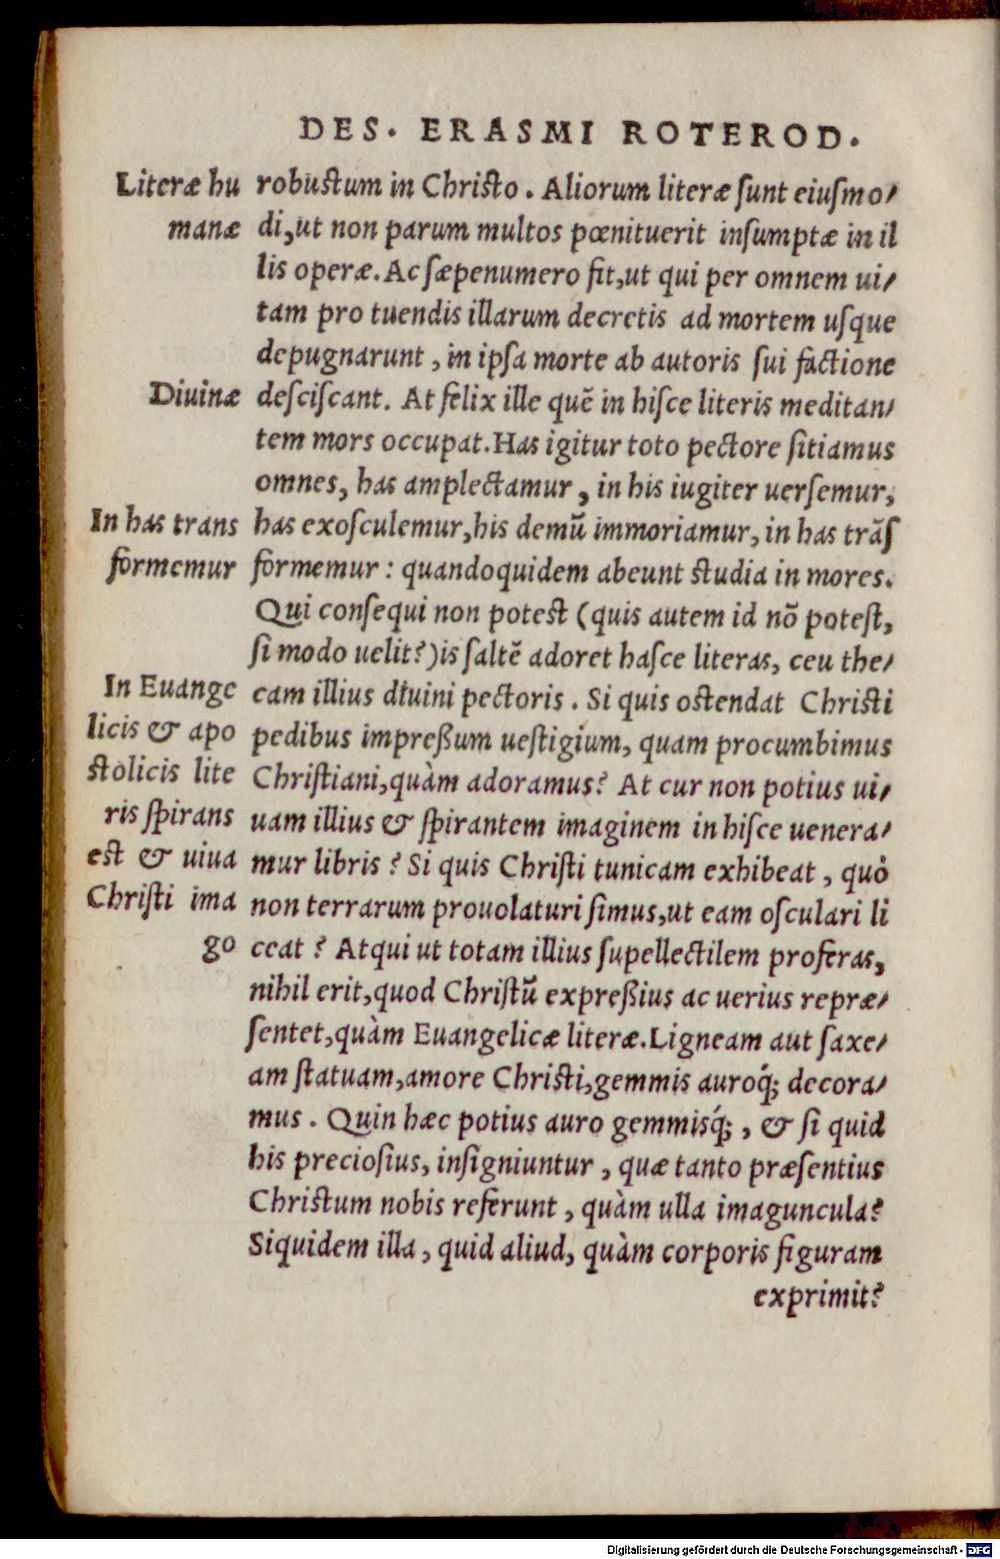 DES. ERASMI ROTEROD.
Literæ hu
manæ
Diuinæ
In has trans
formemur
In Euange
licis & apo
stolicis lite
ris spirans
est & uiua
Christi ima
go
robustum in Christo. Aliorum literæ sunt eiusmo/
di, ut non parum multos pœnituerit insumptæ in il
lis operæ. Ac sæpenumero fit, ut qui per omnem ui/
tam pro tuendis illarum decretis ad mortem usque
depugnarunt, in ipsa morte ab autoris sui factione
desciscant. At felix ille quẽ in hisce literis meditan/
tem mors occupat. Has igitur toto pectore sitiamus
omnes, has amplectamur, in his iugiter uersemur,
has exosculemur, his demũ immoriamur, in has trãs
formemur: quandoquidem abeunt studia in mores.
Qui consequi non potest (quis autem id nõ potest,
si modo uelit?) is saltẽ adoret hasce literas, ceu the/
cam illius diuini pectoris. Si quis ostendat Christi
pedibus impreßum uestigium, quam procumbimus
Christiani, quàm adoramus? At cur non potius ui/
uam illius & spirantem imaginem in hisce uenera/
mur libris? Si quis Christi tunicam exhibeat, quò
non terrarum prouolaturi simus, ut eam osculari li
ceat? Atqui ut totam illius supellectilem proferas,
nihil erit, quod Christũ expreßius ac uerius repræ/
sentet, quàm Euangelicæ literæ. Ligneam aut saxe/
am statuam, amore Christi, gemmis auroq́; decora/
mus. Quin hæc potius auro gemmisq́;, & si quid
his preciosius, insigniuntur, quæ tanto præsentius
Christum nobis referunt, quàm ulla imaguncula?
Siquidem illa, quid aliud, quàm corporis figuram
exprimit?
Digitalisierung gefördert durch die Deutsche Forschungsgemeinschaft - DFG